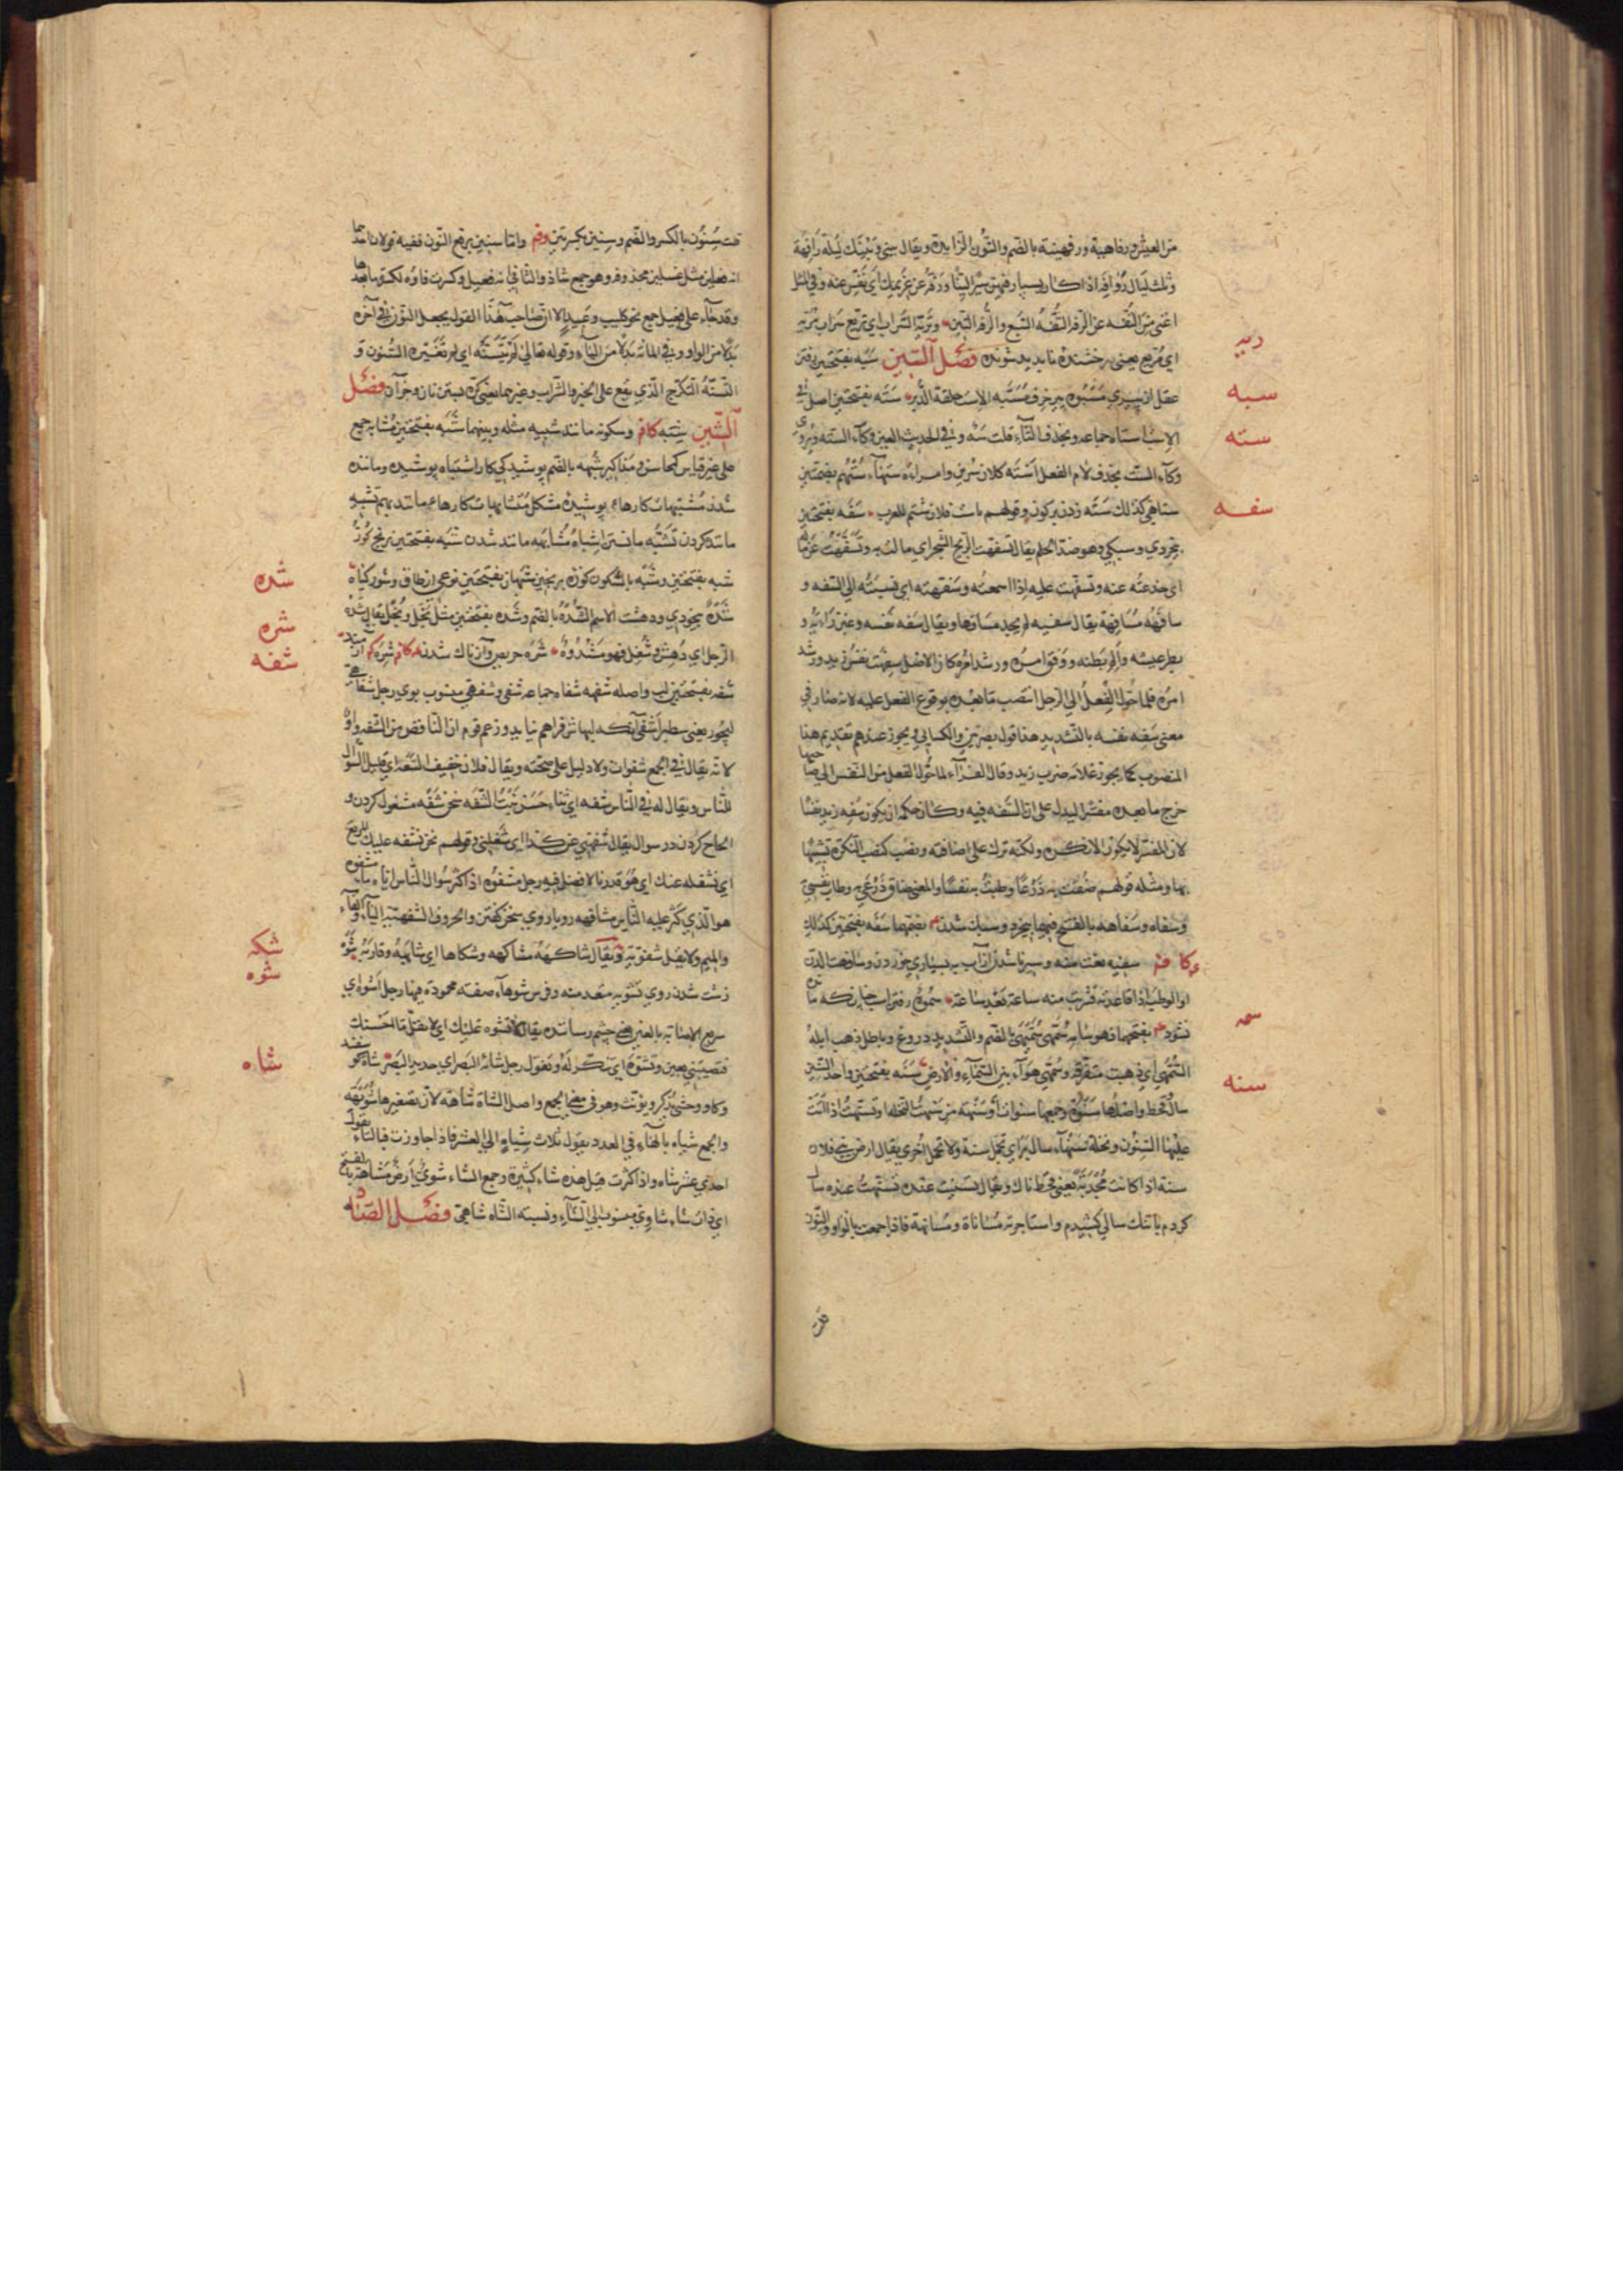 من العيش ورفاهية ورفهينة بالضم والنون الزايدة ويقال بيني وبينك ليلة رافهة
وثلث ليال روافه اذا كان يسار فيهن سيرا لينا ورفه عن غريمك اي نفس عنه وفي المثل
اغنى من التفه عن الرفه التفه السبع والرفه التبن وتريه السراب اي تريع سراب تريه
ربيه
اي مريع يعني درخشنده ناپديد شونده فصل السين سبه بفتحتين رفتن
سبه
عقل از پيري مسبوه پير خرف مسبه الاست حلقة الدبر سته بفتحتين اصل
سته
الاست استاه جماعه وبحذف التاء قلت سه وفي الحديث العين وكاء السته ويروى
وكاء الست بحذف لام الفعل استه كلان سرين وامراة ستهاء ستهم بضمتين
ستاهي كذلك سته زدن بر كون وقولهم باست فلان شتم للعرب سفه بفتحتين
سفه
بيخردي وسبكي وهو ضد الحلم يقال تسفهت الريح الشجر اي مالت به وتسفهت عن ماله
اي خدعته عنه وتسفهت عليه اذا اسمعته وسفهته اي نسبته الى السفه و
سافهه مسافهة يقال سفيه لم يجد مسافها ويقال سفه نفسه وغبن رايه و
بطر عيشه والم بطنه ووفق امره ورشد امره كان الاصل سفهت نفس زيد ورشد
امره فلما حول الفعل الى الرجل انتصب ما بعده بوقوع الفعل عليه لانه صار في
معنى سفه نفسه بالتشديد هذا قول بصريين والكسائي ويجوز عندهم تقديم هذا
المنصوب كما يجوز غلامه ضرب زيد وقال الفراء لما حول الفعل من النفس الى صاحبها
خرج ما بعده مفسرا ليدل على ان السفه فيه وكان حكمه ان يكون سفه زيد نفسا
لان المفسر لا يكون الا نكره ولكنه ترك على اضافته ونصب كنصب النكرة تشبيها
بها ومثله قولهم ضقت به ذرعا وطبت به نفسا والمعنى ضاق ذرعي به وطاب نفسي
وسفاه وسفاهه بالفتح فيهما بيخرد وسبك شدن بضمها سفه بفتحتين كذلك
سفيه نعت منه وسير ناشدن از آب به بسياري خوردن وسافهت الدن
او الوطب اذا قاعدته فشربت منه ساعة بعد ساعة سموه رفتن اسب چنانكه مانده
سمه
نشود بفتحها فهو سامه سمهى سميهى بالضم والتشديد دروغ وباطل ذهب ابله
السمهى اي ذهبت متفرقة وسمهى هواء بين السماء والارض سنه بفتحتين واحد السنين
سنه
سال قحط واصلها سنوة وجمعها سنوات او سنهة من سنهت النخله وتسنهت اذا اتت
عليها السنون ونخلة سنهاء سال بر اي تحمل سنة ولا تحمل اخرى يقال ارض بني فلان
سنة اذا كانت مجدبة يعني قحط ناك ويقال تسنيت عنده تسنهت عنده سال
كردم با تنك سالي كشيدم واستاجرته مساناة ومسانهة فاذا جمعت بالواو والنون
قلت سنون بالكسر والضم وسنين بكسرتين وقم واما سنين برفع النون ففيه قولان احدهما
انه فعلين مثل غسلين محذوفه وهو جمع شاذ والثاني انه فعيل وكسرت فاؤه لكسرة ما بعدها
وقد جاء على فعيل جمع نحو كليب وعبيد الا ان صاحب هذا القول يجعل النون في آخره
بدلا من الواو وفي المائه بدلا من الياء وقوله تعالى لم يتسنه اي لم تغيره السنون و
التسنه التكرج الذي يقع على الخبز والشراب وغيرهما يعني كره بستن نان وجز آن فصل
الشين شبه كافر وسكونه مانند شبيه مثله وبينهما شبه بفتحتين مشابه جمع
على غير قياس كمحاسن ومذاكير شبهه بالضم پوشيدگي كار اشتباه پوشيده ومانند
شدن مشتبهات كارهاء پوشيده مشكل متشابهات كارهاء مانند بهم تشبيه
مانند كردن تشبه مانستن اشباه مشابهه مانند شدن شبه بفتحتين برنج كوز
شبه بفتحتين وشبه بالسكون كوزه برنجين شبهان بفتحتين نوعي از طاق وشور كياه
شده
شده بيخودي ودهشت الاسم الشده بالضم وشده بفتحتين مثل بخل وبخل يقال شده
شره
الرجل اي دهش وشغل فهو مشدوه شره حريص وآزناك شدن كافر شره
شفه
شفه بفتحتين لب واصله شفهه شفاه جماعه شفي وشفهي منسوب بوي رجل شفاهي
يعني سطبر اشفى آنكه لبهاش فراهم نيايد وزعم قوم ان الناقص من الشفه واو
لانه يقال في الجمع شفوات ولا دليل على صحته ويقال فلان خفيف الشفة اي قليل السوال
للناس ويقال له في الناس شفه اي ثناء حسن الشفه نحن شفه مشغول كردن و
الحاح كردن در سوال يقال شفهني عن كذا اي شغلني وقولهم نحن نشفه عليك المرتع
اي نشغله عنك اي هو قدرنا لا فضل فيه رجل مشفوه اذا كثر سوال الناس اياه ماء مشفوه
هو الذي كثر عليه الناس مشافهه روياروي سخن گفتن والحروف الشفهية الباء والفاء
والميم ولا يقل شفوية ويقال شاكهه مشاكهه وشكاها اي شابهه وقاربه شوه
شكه
شوه
زشت شدن روي تشويه متعد منه وفرس شوهاء صفته محمودة فيها رجل اشوه اي
سريع الاصابة بالعين يعني چشم رساننده يقال لا تشوه عليك اي لا يقل ما احسنك
فتصيبني بعين وتشوه اي تنكر له وتغول رجل شائه البصر اي حديد البصر شاه گوسفند
شاه
وگاو وحشي يذكر ويؤنث وهو في معنى الجمع واصل الشاة شاهة لان تصغيرها شويهة
والجمع شياه بالهاء في العدد يقول ثلاث شياه الى العشر فاذا جاوزت فبالتاء يقول
احدي عشر شاه واذا كثرت قيل هذه شاء كثيرة وجمع الشاء شوي ارض مشاهة بالفتح
اي ذات شاء شاوي منسوب الى الشاء ونسبة الشاه شاهي فصل الصاد